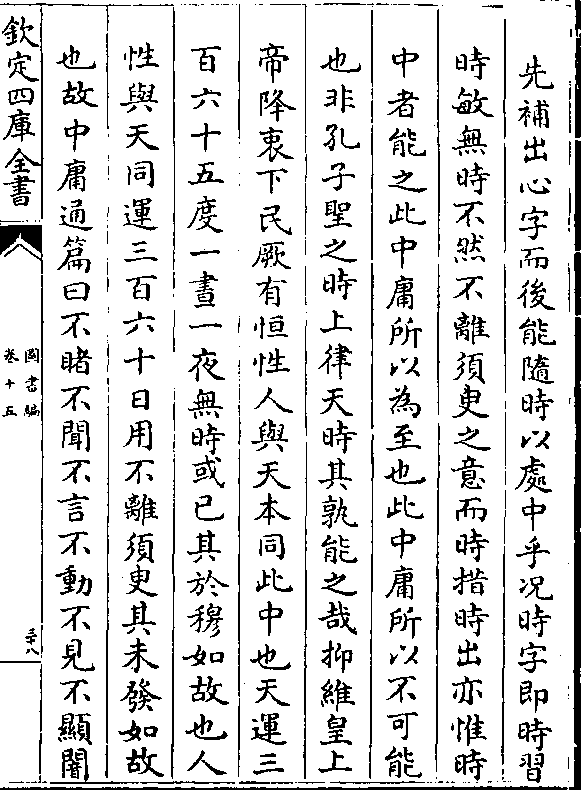 先補出心字而後能隨時以處中乎况時字即時習
時敏無時不然不離須臾之意而時措時出亦惟時
中者能之此中庸所以為至也此中庸所以不可能
也非孔子聖之時上律天時其孰能之哉抑維皇上
帝降衷下民厥有恒性人與天本同此中也天運三
百六十五度一晝一夜無時或已其於穆如故也人
性與天同運三百六十日用不離須臾其未發如故
也故中庸通篇曰不睹不聞不言不動不見不顯闇
欽定四庫全書
圖書編
卷十五
三十八